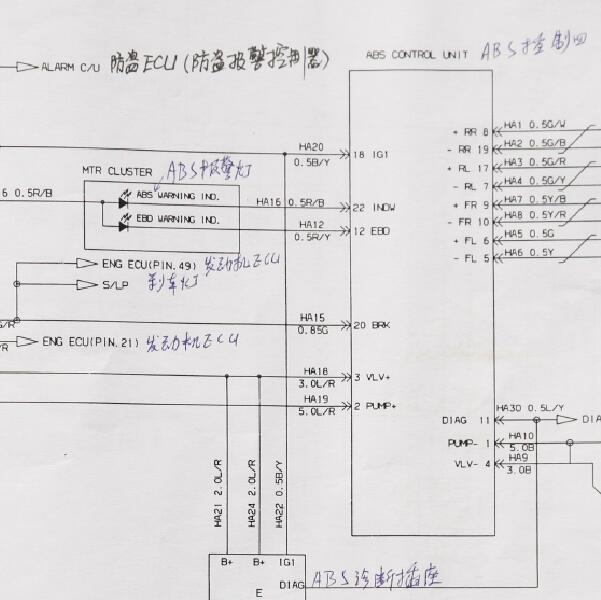 ABS CONTROL UNIT ABS控制四
ALARM C/U 防盗ECU(防盗报警控制器)
HA20
0.5B/Y
18 IG1
MTR CLUSTER ABS报警灯
6 0.5R/B
ABS WARNING IND.
HA16 0.5R/B
22 INDW
EBD WARNING IND.
HA12
0.5R/Y
12 EBD
ENG ECU(PIN.49) 发动机ECU
S/LP 刹车灯
G/R
HA15
0.85G
20 BRK
/R
ENG ECU(PIN.21) 发动机ECU
HA18
3.0L/R
3 VLV+
HA19
5.0L/R
2 PUMP+
+ RR 8 HA1 0.5G/W
- RR 19 HA2 0.5G/B
+ RL 17 HA3 0.5G/R
- RL 7 HA4 0.5G/Y
+ FR 9 HA7 0.5Y/B
- FR 10 HA8 0.5Y/R
+ FL 6 HA5 0.5G
- FL 5 HA6 0.5Y
DIAG 11 HA30 0.5L/Y DIA
PUMP- 1 HA10
5.0B
VLV- 4 HA9
3.0B
HA21 2.0L/R
HA24 2.0L/R
HA22 0.5B/Y
B+ B+ IG1
DIAG ABS诊断插座
E